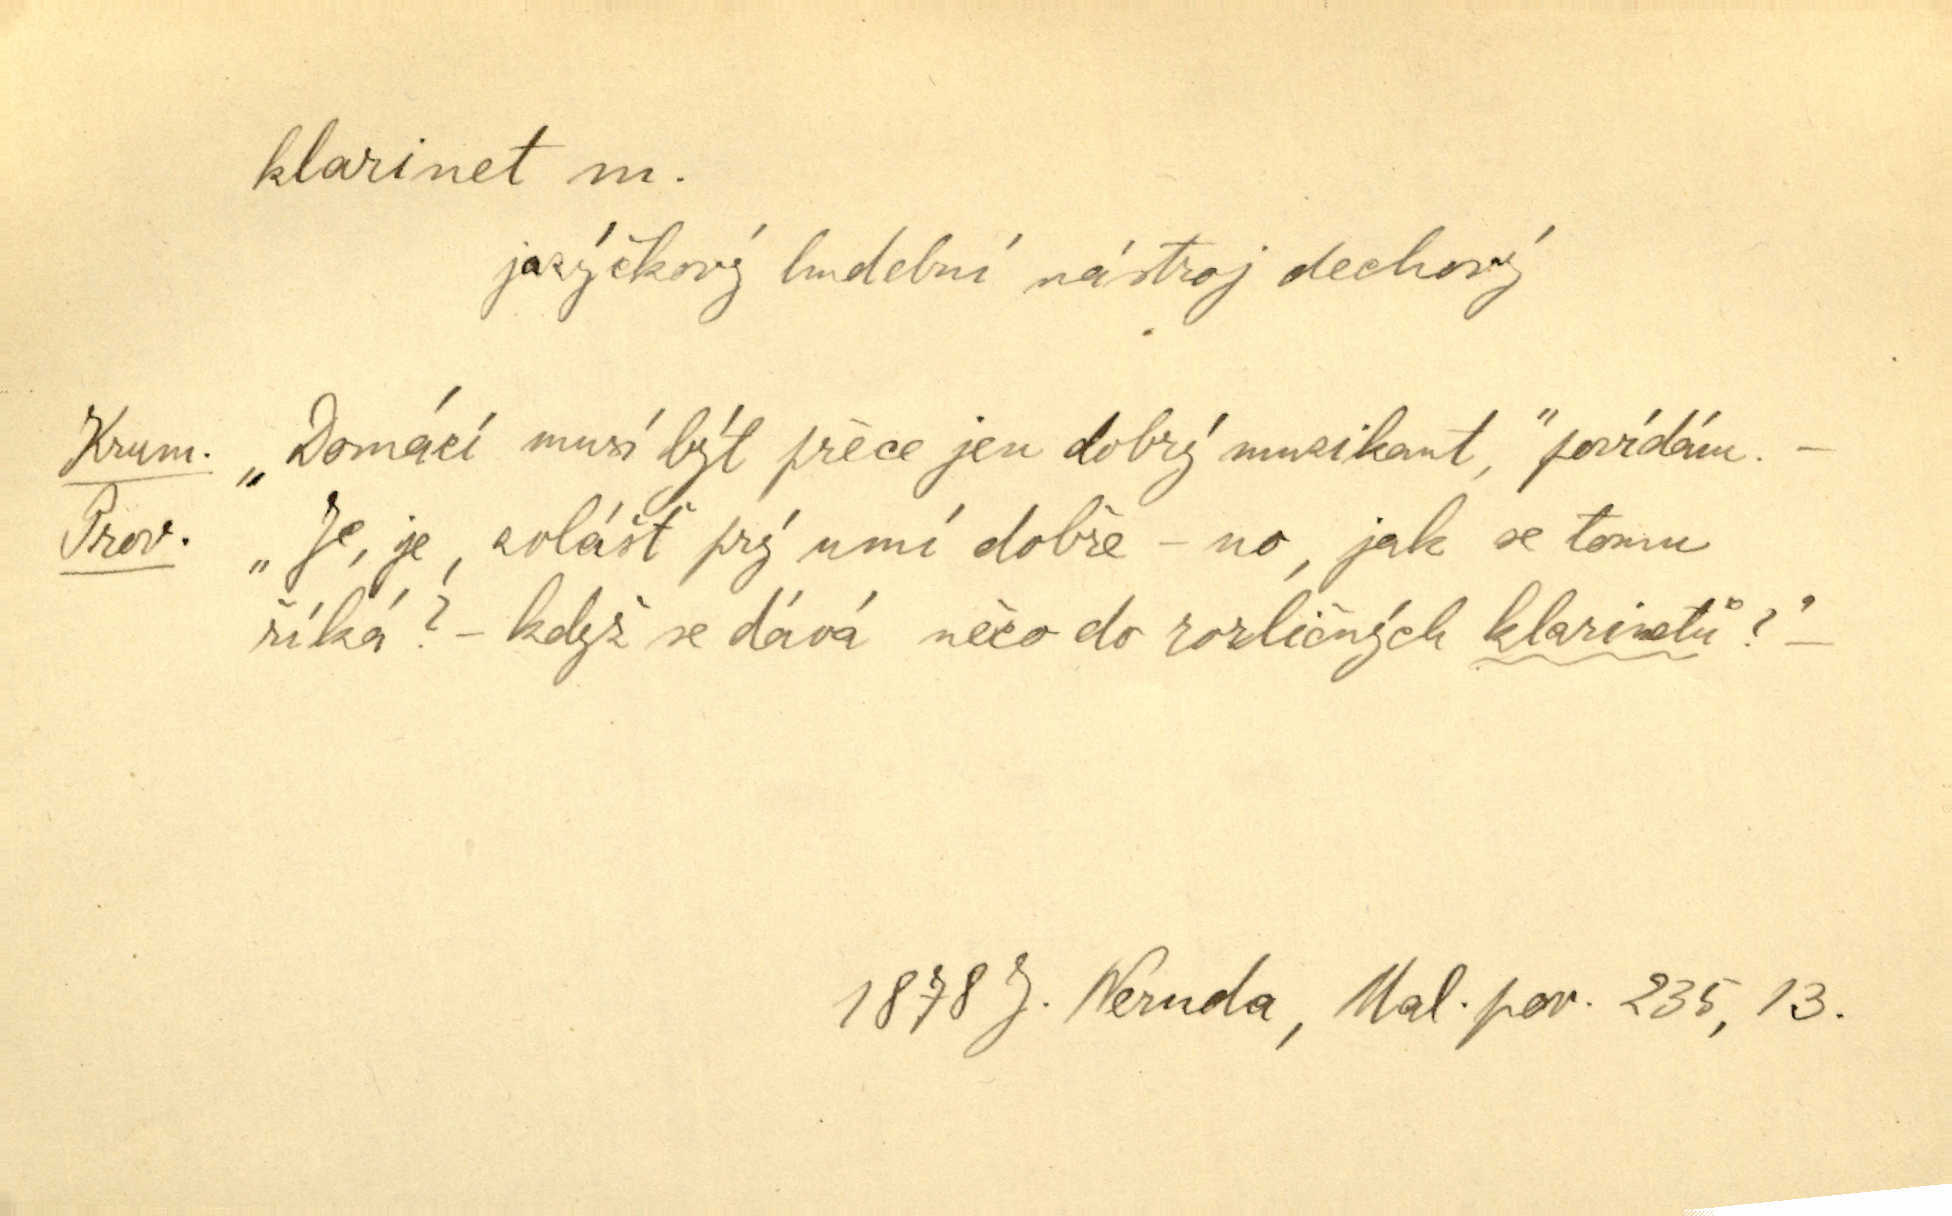 klarinet m.
jazýčkový hudební nástroj dechový
Krum. „Domácí musí být přece jen dobrý muzikant,“ povídám. –
Prov. „Je, je, zvlášť prý umí dobře – no, jak se tomu
říká? – když se dává něco do rozličných klarinetů?“ –
1878 J. Neruda, Mal. pov. 235, 13.